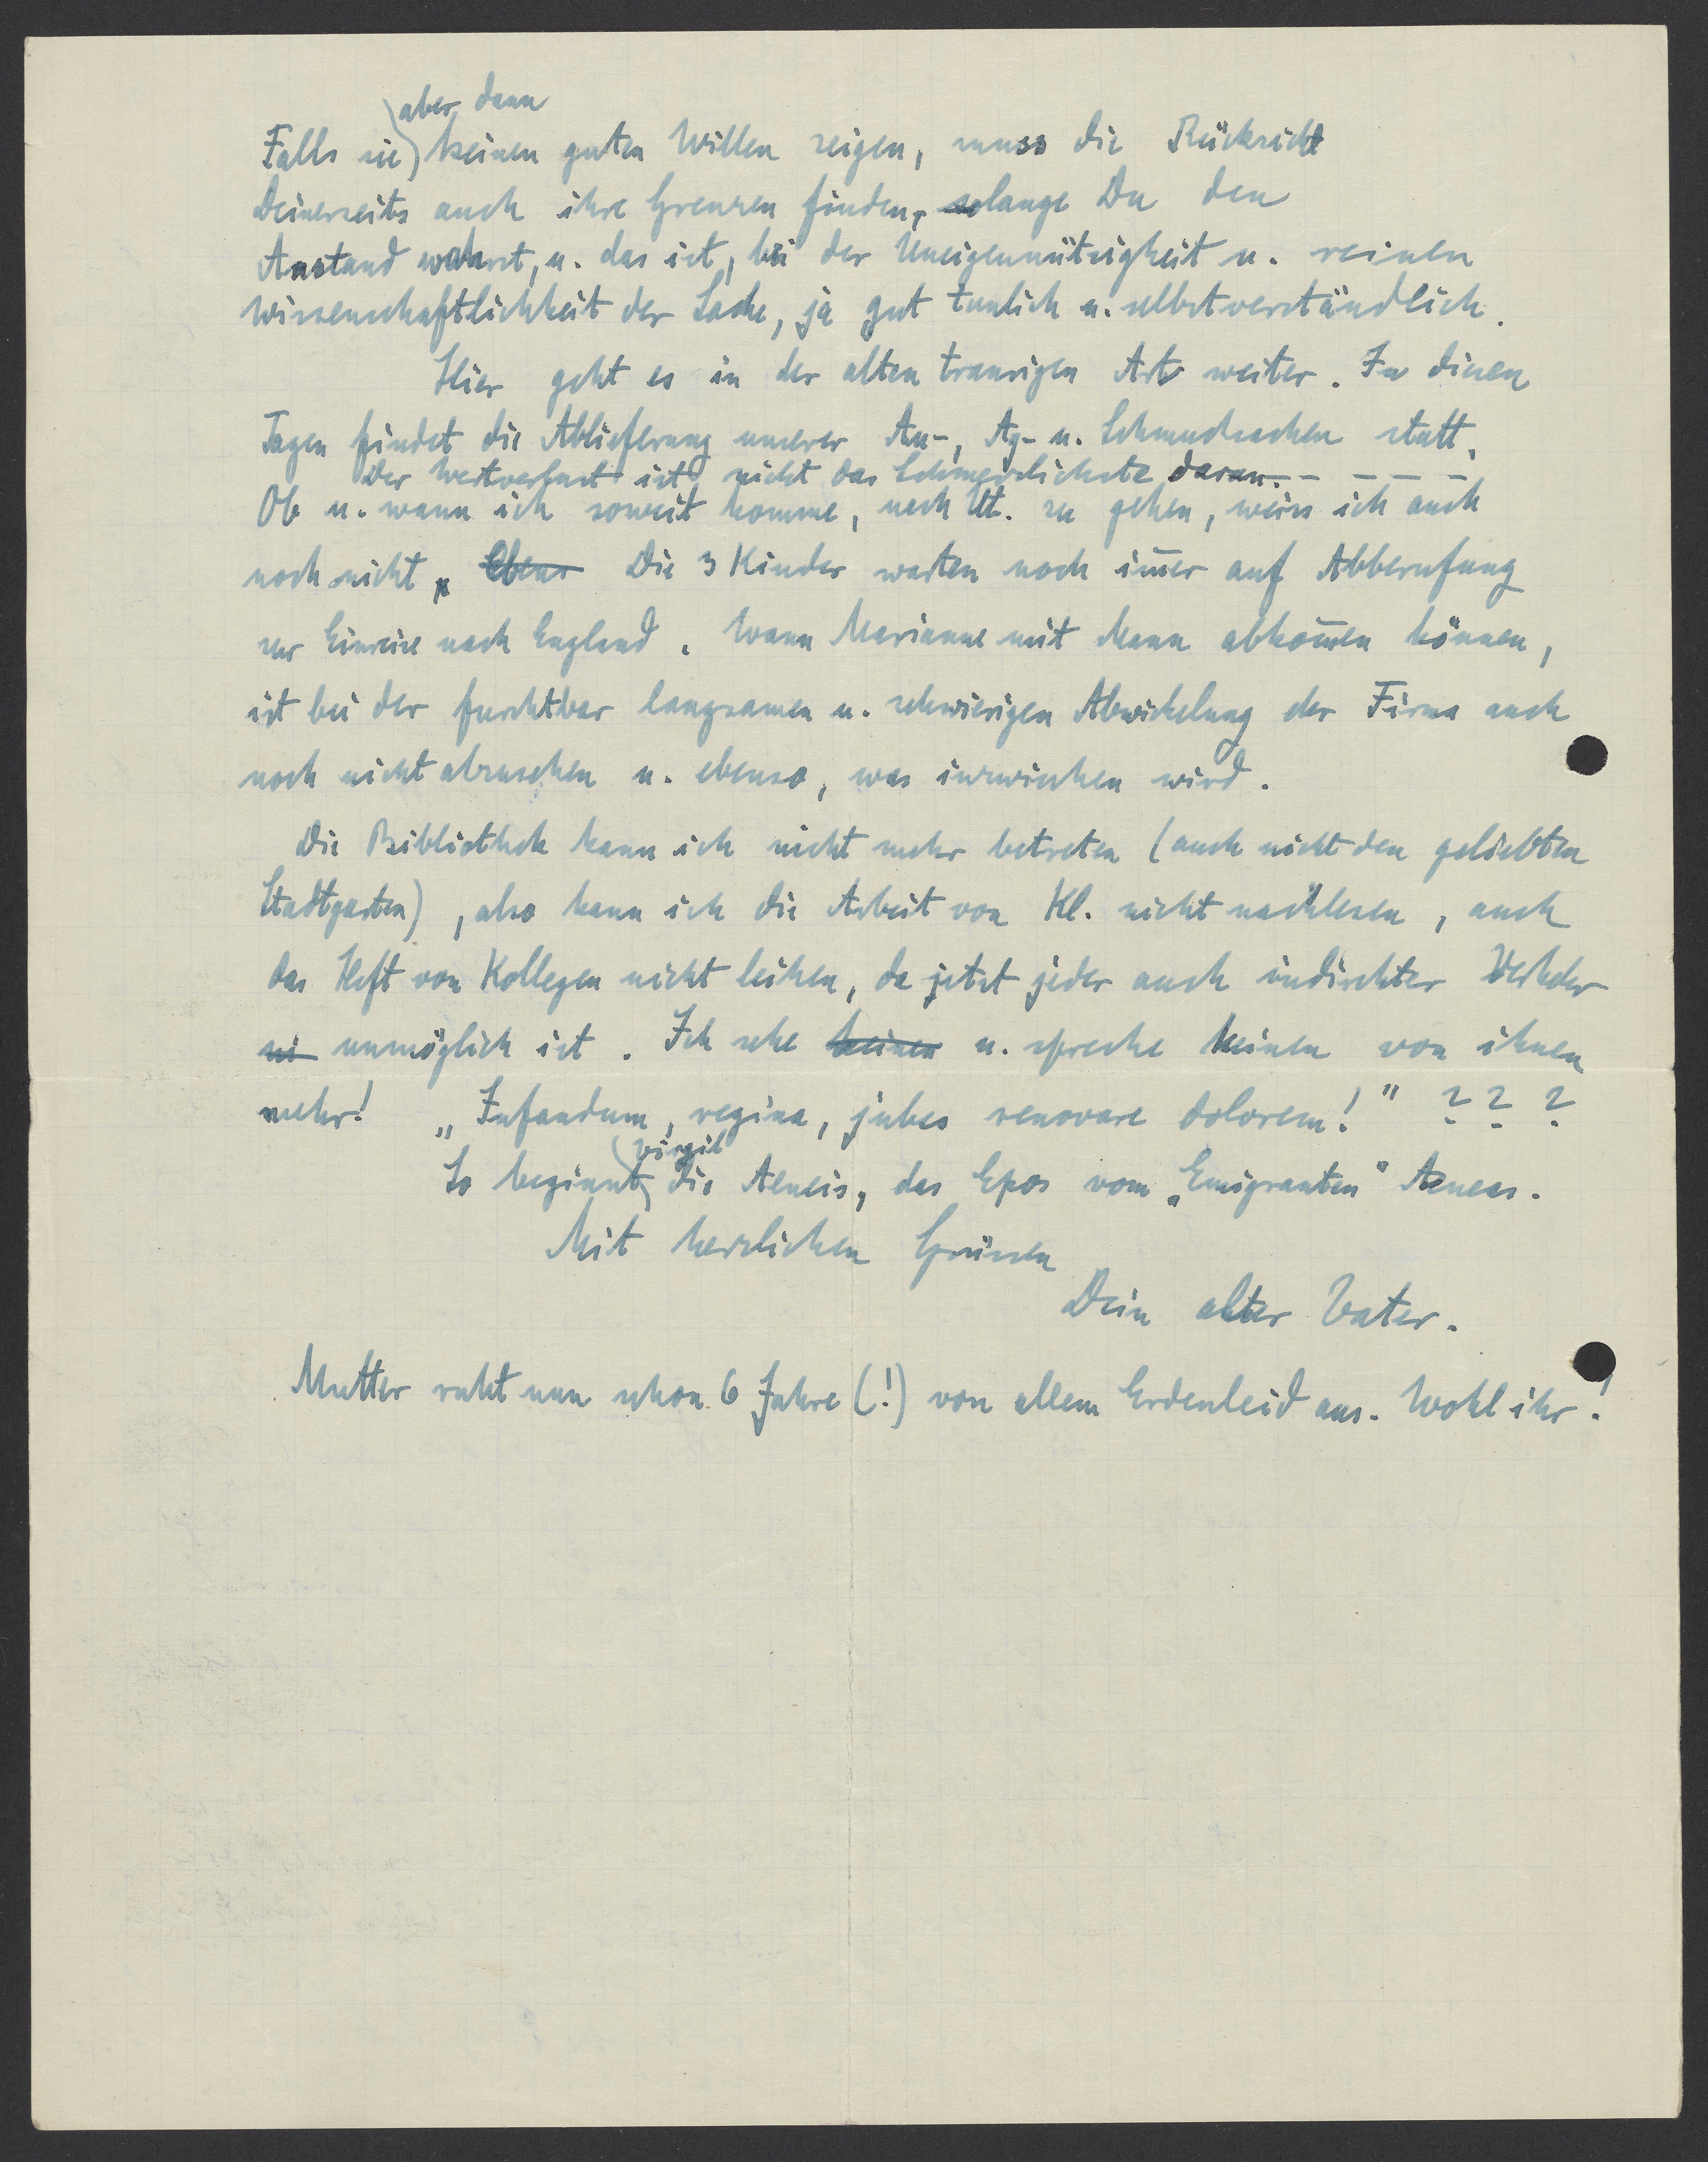 aber dann
Falls sie keinen guten Willen zeigen, muss die Rücksicht
Deinerseits auch ihre Grenzen finden, solange Du den
Anstand wahrst, u. das ist, bei der Uneigennützigkeit u. reinen
Wissenschaftlichkeit der Sache, ja gut tunlich u. selbstverständlich.
Hier geht es in der alten traurigen Art weiter. In diesen
Tagen findet die Ablieferung unserer Au-, Ag- u. Schmucksachen statt.
Der Wertverlust ist nicht das Schmerzlichste daran. - - - -
Ob u. wann ich soweit komme, nach Utt. zu gehen, weiss ich auch
noch nicht. Ebens Die 3 Kinder warten noch im̄er auf Abberufung
zur Einreise nach England. Wann Marianne mit Mann abkom̄en können,
ist bei der furchtbar langsamen u. schwierigen Abwickelung der Firma auch
noch nicht abzusehen u. ebenso, was inzwischen wird.
Die Bibliothek kann ich nicht mehr betreten (auch nicht den geliebten
Stadtgarten), also kann ich die Arbeit von Kl. nicht nachlesen, auch
das Heft von Kollegen nicht leihen, da jetzt jeder auch indirekter Verkehr
ni unmöglich ist. Ich sehe keinen u. spreche keinen von ihnen
mehr! „Infandum, regina, jubes renovare dolorem!" ? ? ?
Virgil
So beginnt die Aeneis, das Epos vom „Emigranten" Aeneas.
Mit herzlichen Grüssen
Dein alter Vater.
Mutter ruht nun schon 6 Jahre (!) von allem Erdenleid aus. Wohl ihr!